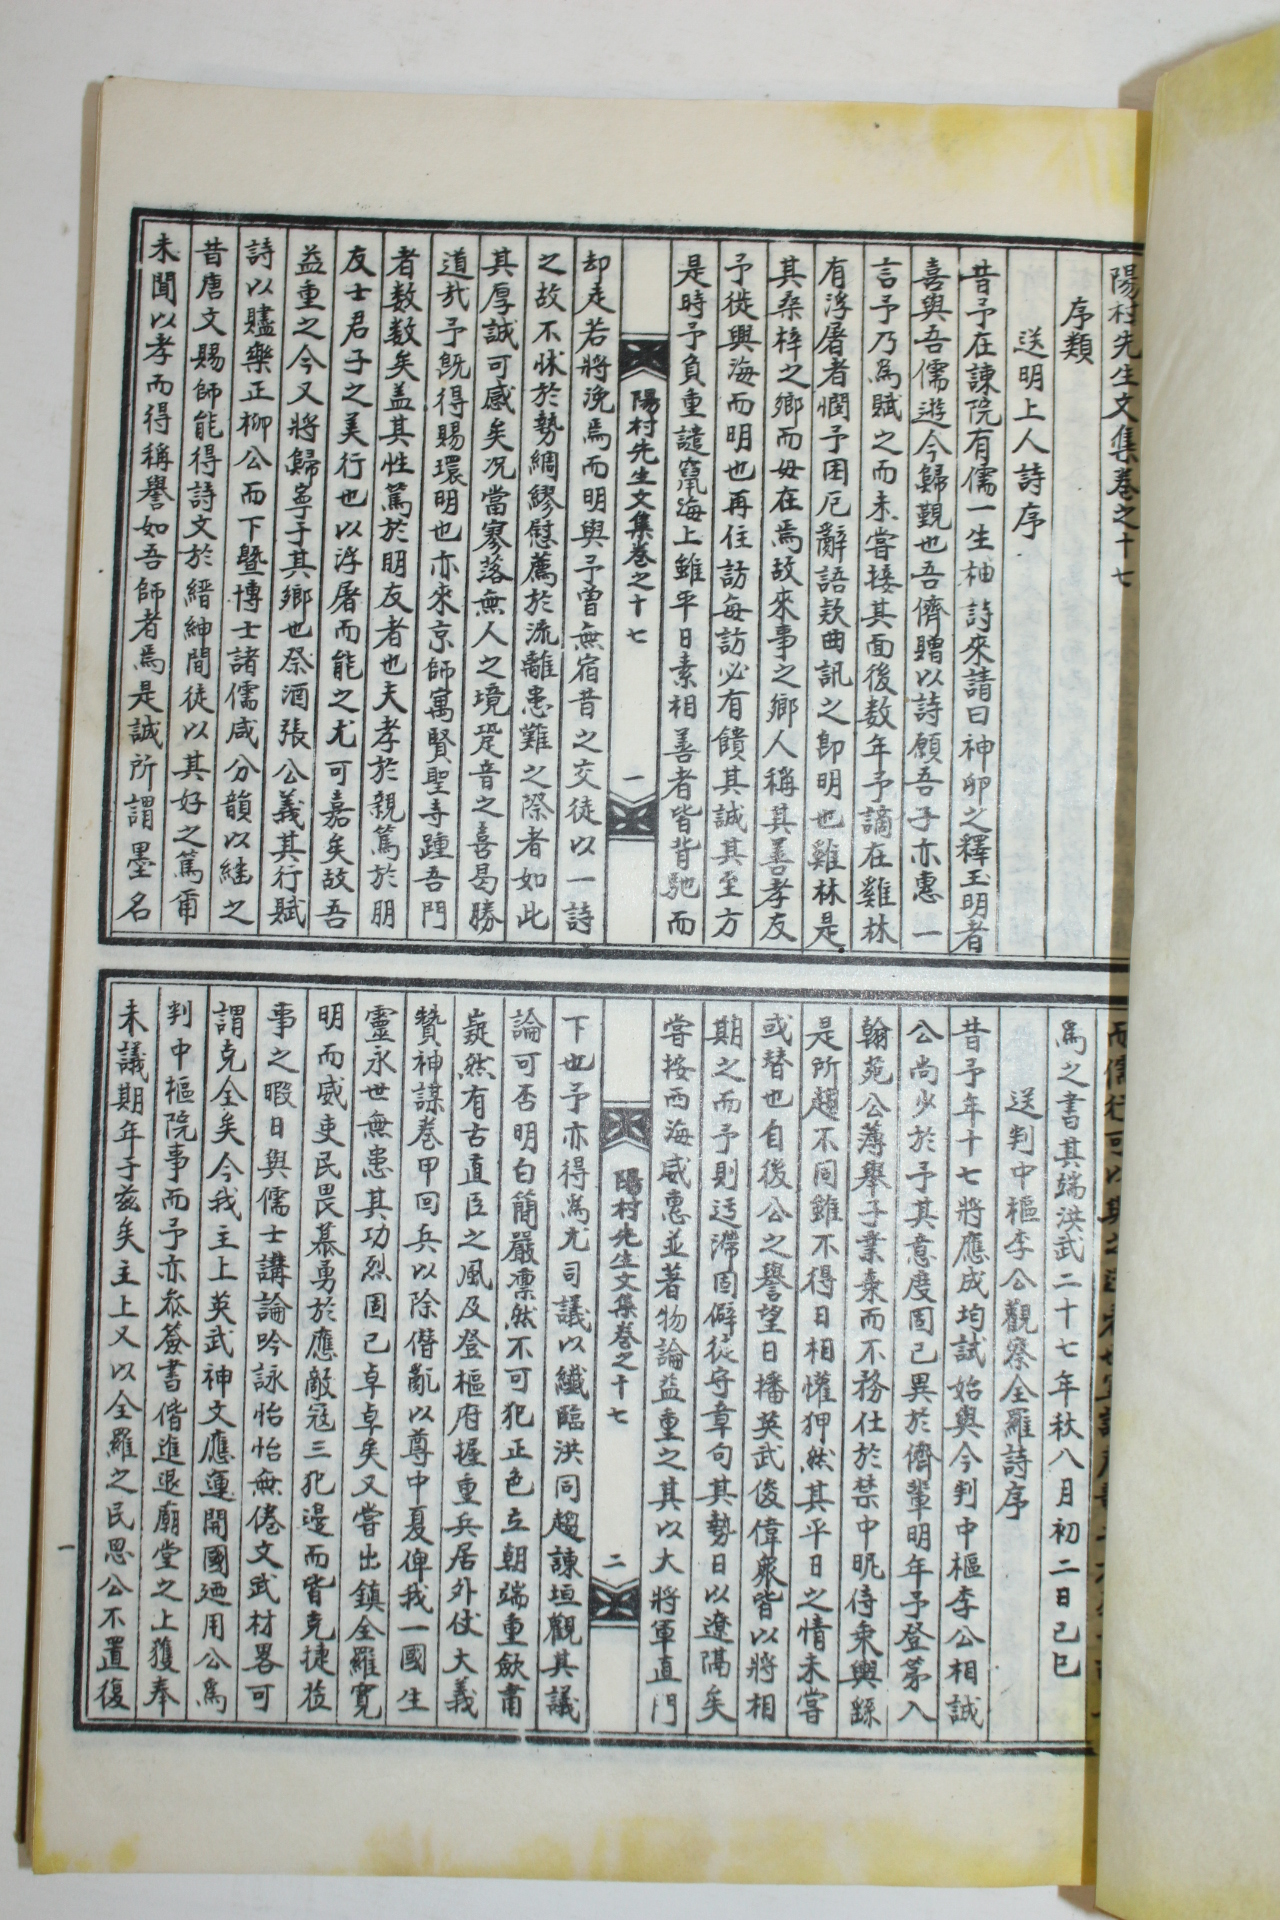 陽村先生文集卷之十七
序類
送明上人詩序
昔予在諫院有儒一生柚詩來請曰神卯之釋玉明者
喜與吾儒遊今歸覲也吾儕贈以詩願吾子亦惠一
言予乃爲賦之而未嘗接其面後数年予謫在雞林
有浮屠者憫予困厄辭語款曲訊之卽明也雞林是
其桑梓之鄕而毋在焉故來事之鄕人稱其善孝友
予徙興海而明也再住訪每訪必有饋其誠其至方
是時予負重譴竄海上雖平日素相善者皆背馳而
陽村先生文集卷之十七
一
却走若將浼焉而明與予曾無宿昔之交徒以一詩
之故不怵於勢綢繆慰薦於流離患難之際者如此
其厚誠可感矣况當寥落無人之境跫音之喜曷勝
道㢤予旣得賜環明也亦來京師寓賢聖寺踵吾門
者数数矣盖其性篤於朋友者也夫孝於親篤於朋
友士君子之美行也以浮屠而能之尤可嘉矣故吾
益重之今又將歸寧于其鄕也祭酒張公義其行賦
詩以贐樂正柳公而下曁博士諸儒咸分韻以継之
昔唐文賜師能得詩文於縉紳間徒以其好之篤甭
未聞以孝而得稱譽如吾師者焉是誠所謂墨名
爲之書其端洪武二十七年秋八月初二日己巳
送判中樞李公觀察全羅詩序
昔予年十七將應成均試始與今判中樞李公相誠
公尚少於予其意度固已異於儕輩明年予登第入
翰苑公薄舉子業棄而不務仕於禁中昵侍乗輿繇
是所趨不同雖不得日相懽狎然其平日之情未嘗
或替也自後公之譽望日播英武俊偉衆皆以將相
期之而予則迃滯固僻從守章句其勢日以遼隔矣
嘗按西海威惠並著物論益重之其以大將軍直門
陽村先生文集卷之十七
二
下也予亦得爲尤司議以纖臨洪同趨諫垣觀其議
論可否明白簡嚴凛然不可犯正色立朝端重歛肅
嶷然有古直臣之風及登樞府握重兵居外仗大義
贊神謀卷甲回兵以除僭亂以尊中夏俾我一國生
靈永世無患其功烈固已卓卓矣又嘗出鎮全羅寛
明而威吏民畏慕勇於應敵寇三犯邊而皆克捷茳
事之暇日與儒士講論吟詠怡怡無倦文武材畧可
謂克全矣今我主上英武神文應運開國廼用公爲
判中樞院事而予亦忝簽書偕進退廟堂之上獲奉
未議期年于茲矣主上又以全羅之民思公不置復
一